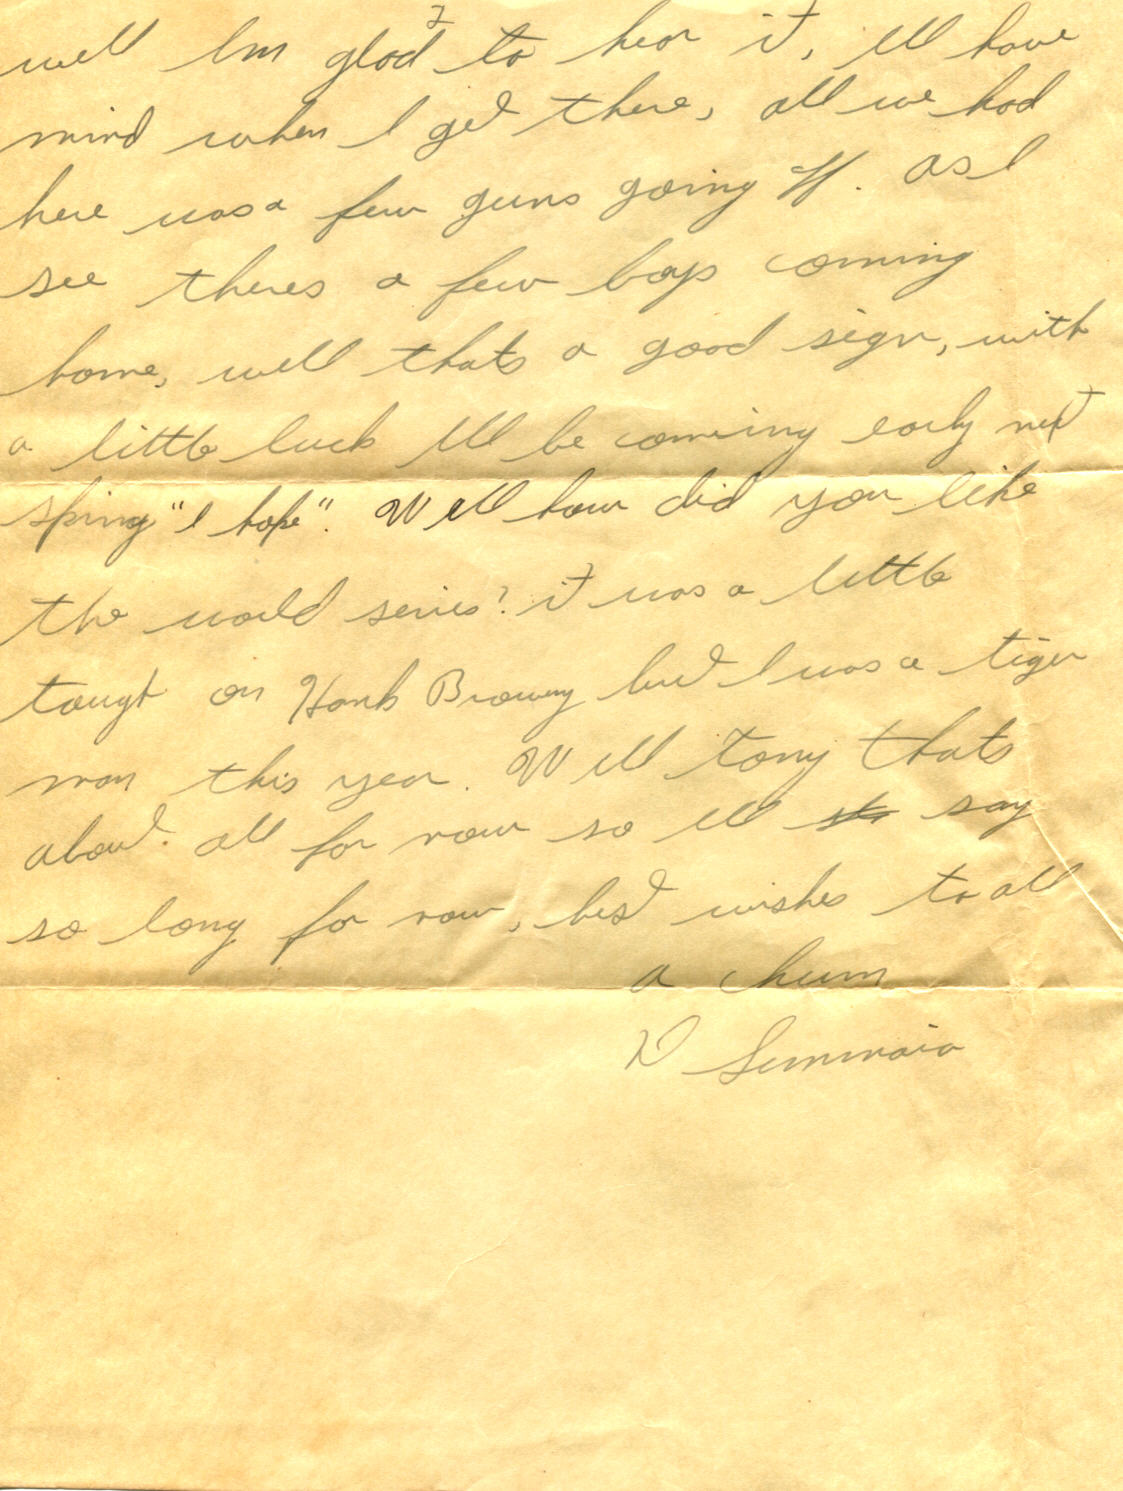 2
well Im glad to hear it, Ill have
mind when I get there, all we had
here was a few guns going off. as I
see theres a few boys coming
home, well thats a good sign, with
a little luck Ill be comeing early next
spring "I hope". Well how did you like
the world series? it was a little
tough on Hank Browny but I was a tiger
man this year. Well Tony thats
about all for now so Ill say
so long for now, best wishes to all
a chum
D